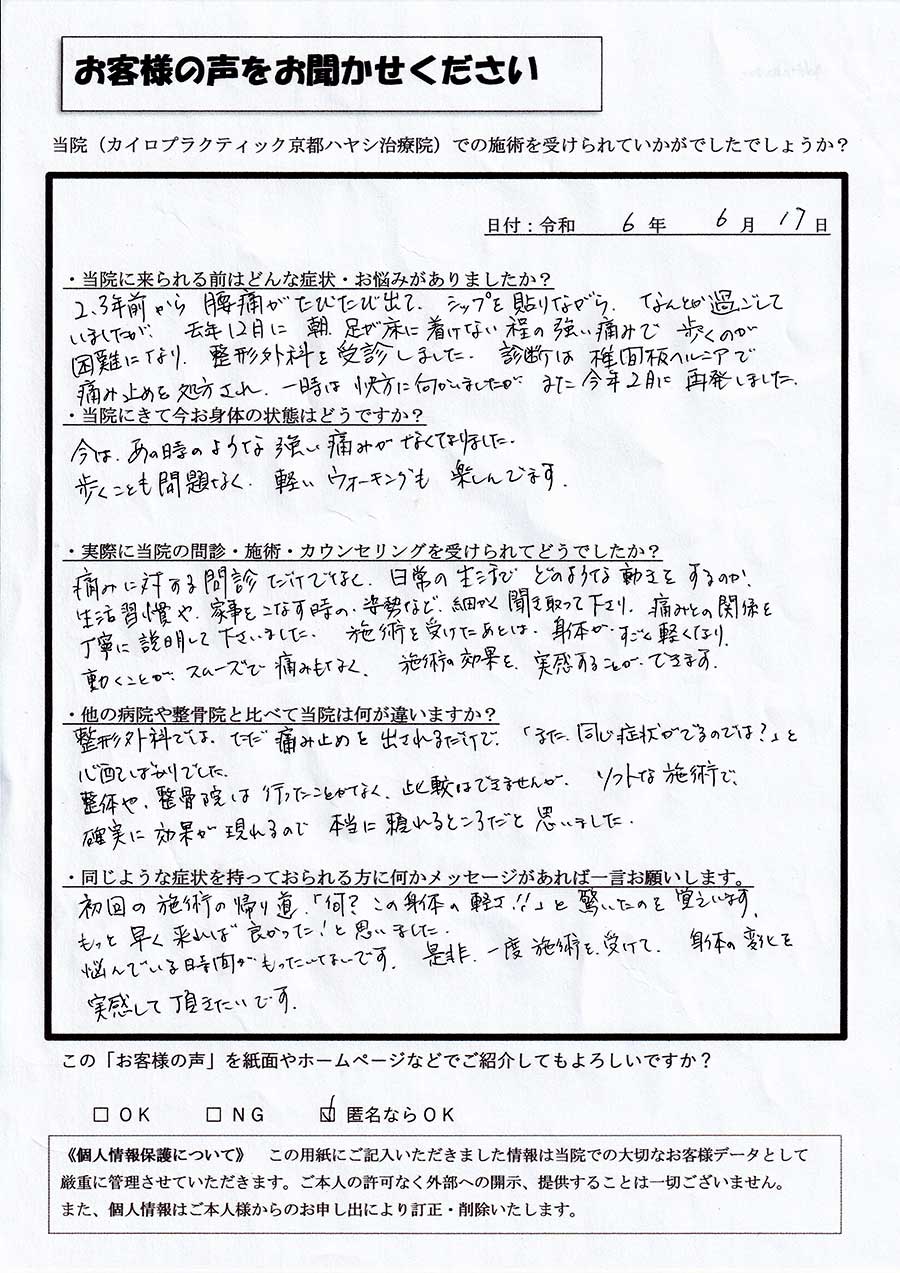 お客様の声をお聞かせください
当院（カイロプラクティック京都ハヤシ治療院）での施術を受けられていかがでしたでしょうか？
日付：令和 6 年 6 月 17 日
・当院に来られる前はどんな症状・お悩みがありましたか？
2、3年前から 腰痛がたびたび出て、シップを貼りながら、なんとか過ごして
いましたが、去年12月に 朝、足が床に着けない程の強い痛みで 歩くのが
困難になり、整形外科を受診しました。診断は椎間板ヘルニアで
痛み止めを処方され、一時は快方に向かいましたが また今年2月に 再発しました。
・当院にきて今お身体の状態はどうですか？
今は、あの時のような強い痛みがなくなりました。
歩くことも問題なく、軽いウォーキングも 楽しんでます。
・実際に当院の問診・施術・カウンセリングを受けられてどうでしたか？
痛みに対する問診だけでなく、日常の生活で どのような動きをするのか、
生活習慣や、家事をこなす時の、姿勢など、細かく聞き取って下さり、痛みとの関係を
丁寧に説明して下さいました。施術を受けたあとは、身体が、すごく軽くなり、
動くことが、スムーズで痛みもなく、施術の効果を、実感することが、できます。
・他の病院や整骨院と比べて当院は何が違いますか？
整形外科では、ただ 痛み止めを 出されるだけで、「また、同じ症状がでるのでは？」と
心配でしばかりでした。
整体や、整骨院は 行ったことがなく、比較はできませんが、ソフトな施術で、
確実に 効果が 現れるので 本当に 頼れるところだと 思いました。
・同じような症状を持っておられる方に何かメッセージがあれば一言お願いします。
初回の施術の帰り道、「何？この身体の軽さ!!」と 驚いたのを 覚えています。
もっと早く来れば良かった！と思いました。
悩んでいる時間がもったいないです。是非、一度施術を、受けて、身体の変化を
実感して頂きたいです。
この「お客様の声」を紙面やホームページなどでご紹介してもよろしいですか？
□ OK □ NG ☑ 匿名ならOK
《個人情報保護について》 この用紙にご記入いただきました情報は当院での大切なお客様データとして
厳重に管理させていただきます。ご本人の許可なく外部への開示、提供することは一切ございません。
また、個人情報はご本人様からのお申し出により訂正・削除いたします。